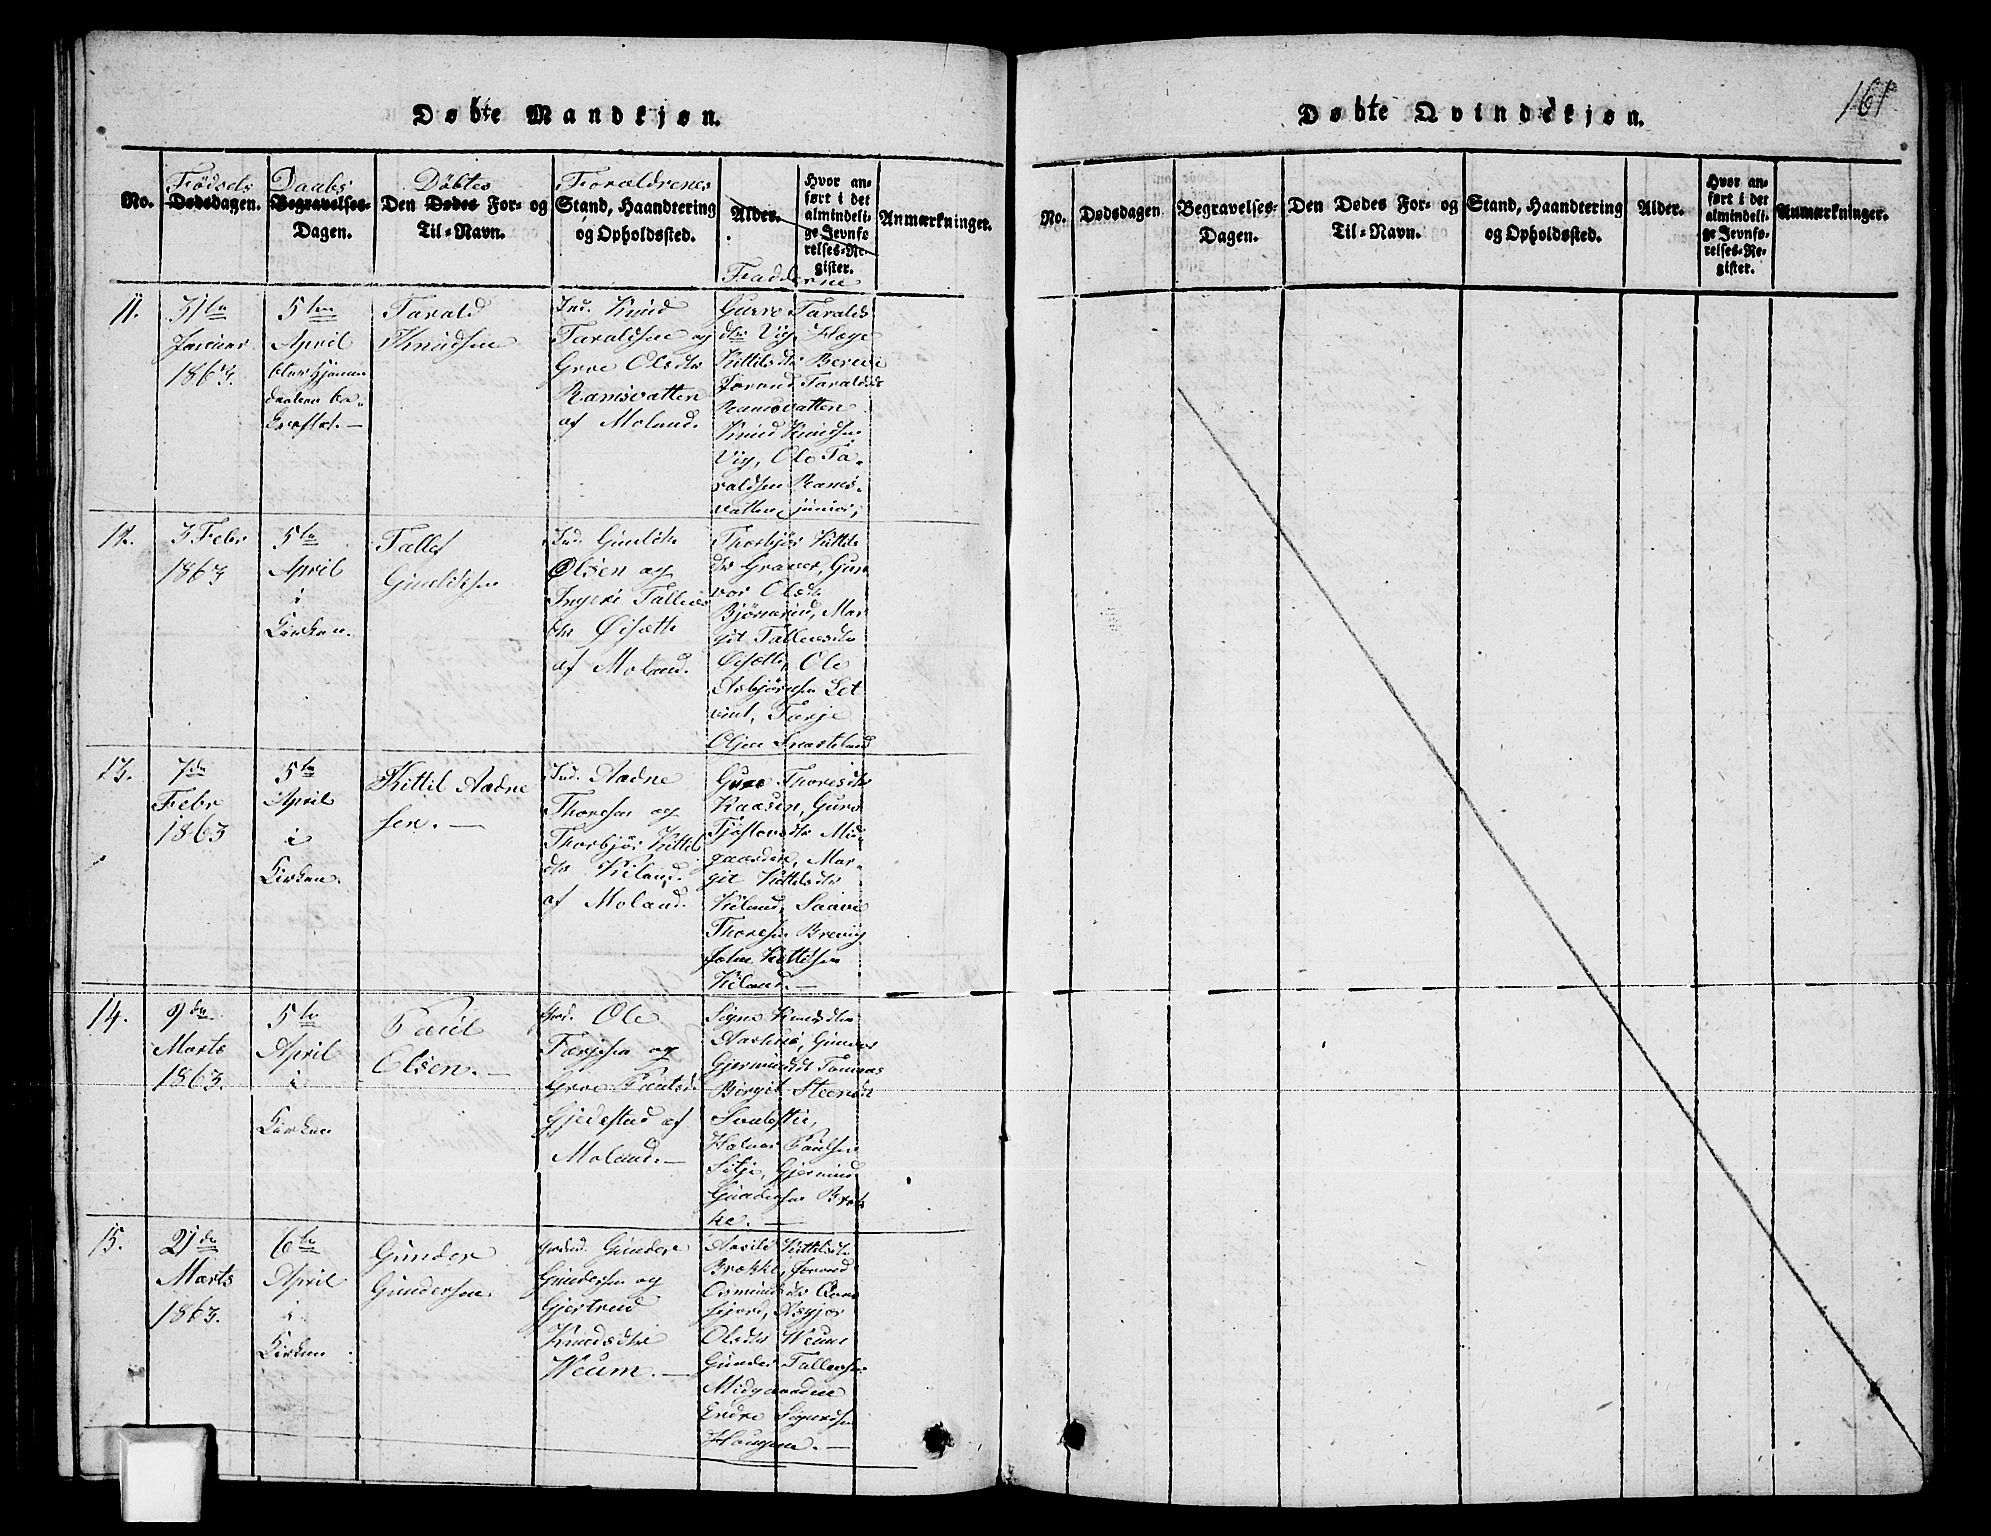 Døbte Mandkjøn.
No.
Fødsels
Dødsdagen.
Daabs
Begravelses-
Dagen.
Døbtes
Den Dødes For- og
Til-Navn.
Forældrenes
Stand, Haandtering
og Opholdssted.
Alder.
Hvor an-
ført i det
almindeli-
ge Jevnfø-
relses-Re-
gister.
Fadderne
Anmærkninger.
11.
31te
Januar
1863.
5te
April
blev hjemme
daaben be-
kræftet.
Tarald
Knudsen
Ind. Knud
Taraldsen og
Groe Olsdtr
Ramsvatten
af Moland.
Gurro Taralds
dtr Vig, Hæge
Kittilsdtr
Jorand Taraldsdtr
Ramsvatten
Knud Knudsen
Vig, Ole Ta-
raldsen Rams-
vatten junior,
12.
3 Febr
1863
5te
April
i
Kirken.
Tallef
Gunleksen
Ind. Gunlek
Olsen og
Ingeri Tallevs
dtr Øisæth
af Moland.
Thorbjør Kittils
dtr Graver, Gun
vor Olsdtr
Mar
git Tallevsdtr
Øisæth, Ole
Asbjørnsen
Tarje
Olsen
13.
7de
Febr
1863
5te
April
i
Kirken.
Kittil Aadne
sen.
Ind. Aadne
Thoresen og
Thorbjør Kittils
dtr Kiland
af Moland.
Guro Thoresdtr
Kaasen, Guro
Tjøstovsdtr Mid-
gaarden, Mar-
git Kittilsdtr
Kiland, Saavi
Thoresen Brevig
John Kittilsen
Kiland.
14.
9de
Marts
1863.
5te
April
i
Kirken
Paul
Olsen.
Gbd. Ole
Tarjesen og
Groe Paulsd.
Gjedestad af
Moland.
Signe Knudsdtr
Gunder
Gjermundsdtr Tomnæs
Birgit Steensdtr
Halvor Paulsen
Gjermund
Gundersen Brok
ke.
15.
21de
Marts
1863.
6te
April
i
Kirken
Gunder
Gundersen
Gunder
Gundersen og
Gjertrud
Knudsdtr
Weum.
Aasild Kittilsdtr
Brokke, Jorand
Osmundsdtr
fjord, Asgjør
Olsdtr Weum
Gunder Tallevsen
Midgaarden
Endre Sigurdsen
Haugene.
Døbte Qvindekjøn.
161
No.
Dødsdagen
Begravelses-
Dagen.
Den Dødes For- og
Til-Navn.
Stand, Haandtering
og Opholdssted.
Alder.
Hvor an-
ført i det
almindeli-
ge Jevnfø-
relses-Re-
gister.
Anmærkninger.